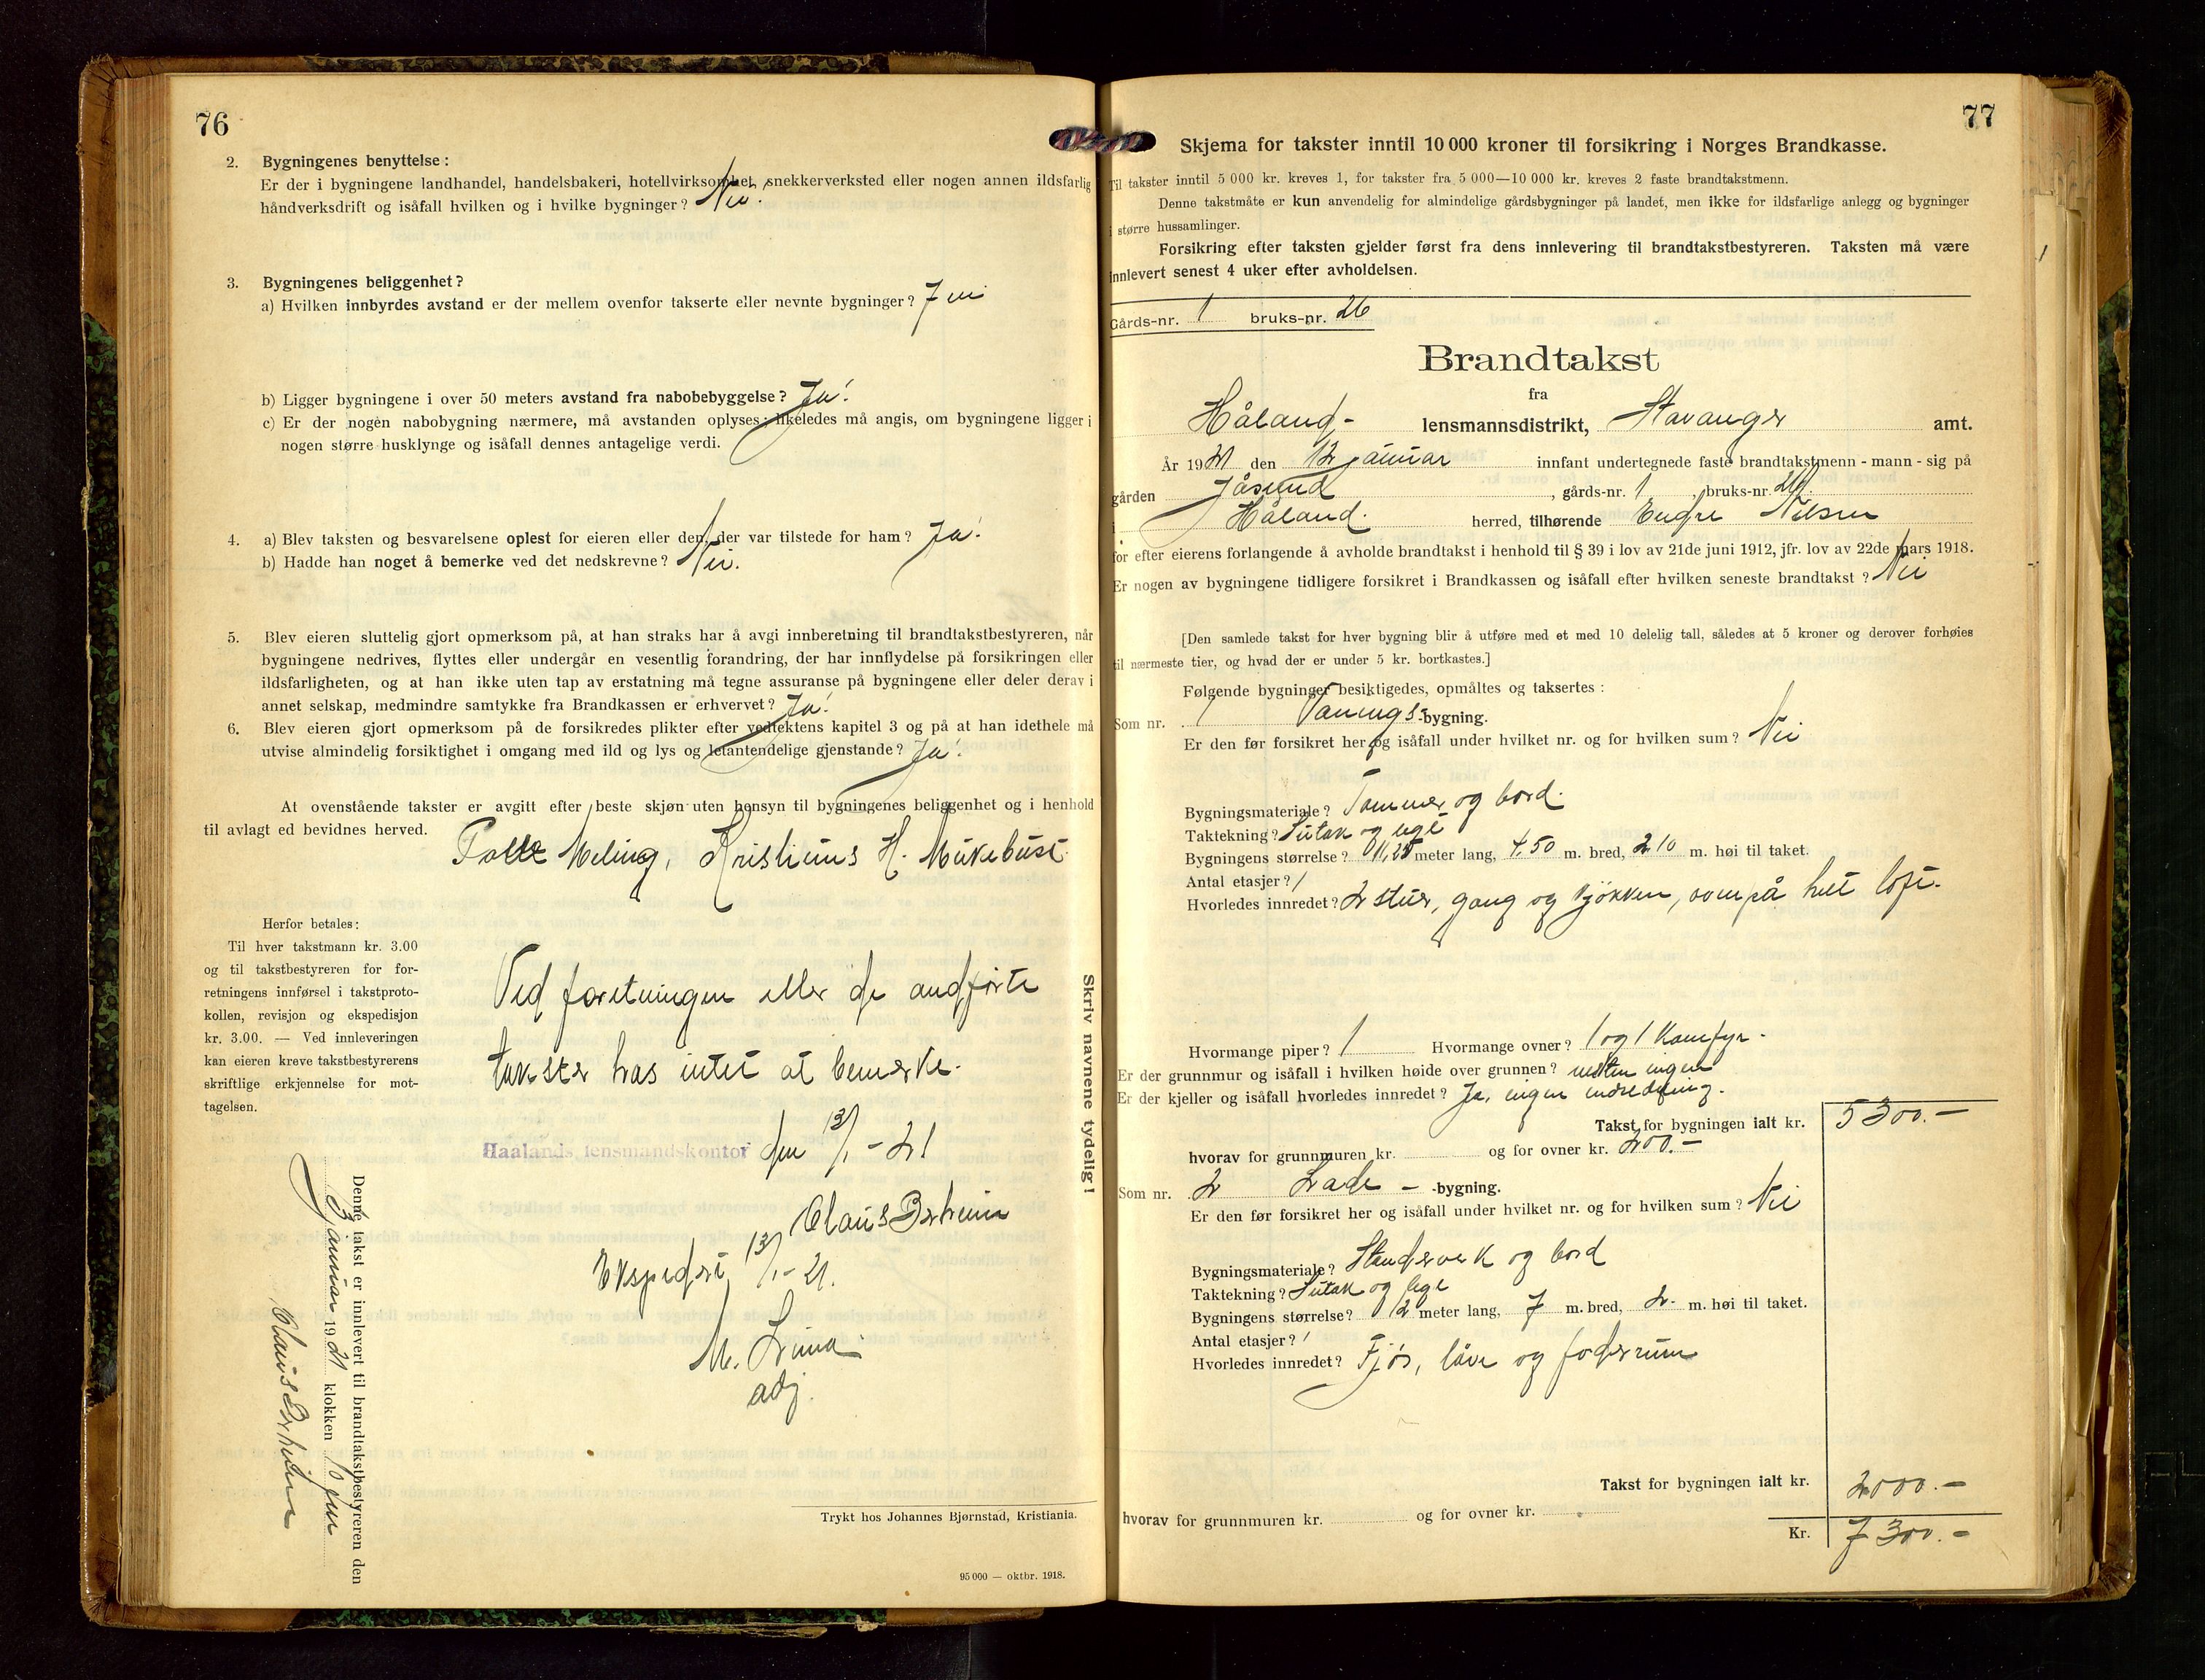 76
2. Bygningenes benyttelse :
Er der i bygningene landhandel, handelsbakeri, hotellvirksomhet, snekkerverksted eller nogen annen ildsfarlig
håndverksdrift og isåfall hvilken og i hvilke bygninger? Nei.
3. Bygningenes beliggenhet?
a) Hvilken innbyrdes avstand er der mellem ovenfor takserte eller nevnte bygninger? 7 m
b) Ligger bygningene i over 50 meters avstand fra nabobebyggelse? Ja!
c) Er der nogen nabobygning nærmere, må avstanden oplyses; likeledes må angis, om bygningene ligger i
nogen større husklynge og isåfall dennes antagelige verdi.
4. a) Blev taksten og besvarelsene oplest for eieren eller den, der var tilstede for ham? Ja!
b) Hadde han noget å bemerke ved det nedskrevne? Nei.
5. Blev eieren sluttelig gjort opmerksom på, at han straks har å avgi innberetning til brandtakstbestyreren, når
bygningene nedrives, flyttes eller undergår en vesentlig forandring, der har innflydelse på forsikringen eller
ildsfarligheten, og at han ikke uten tap av erstatning må tegne assuranse på bygningene eller deler derav i
annet selskap, medmindre samtykke fra Brandkassen er erhvervet? Ja!
6. Blev eieren gjort opmerksom på de forsikredes plikter efter vedtektens kapitel 3 og på at han idethele må
utvise almindelig forsiktighet i omgang med ild og lys og letantendelige gjenstande? Ja!
At ovenstående takster er avgitt efter beste skjøn uten hensyn til bygningenes beliggenhet og i henhold
til avlagt ed bevidnes herved.
Meling, H.
Herfor betales:
Til hver takstmann kr. 3.00
og til takstbestyreren for for-
retningens innførsel i takstproto-
kollen, revisjon og ekspedisjon
kr. 3.00. — Ved innleveringen
kan eieren kreve takstbestyrerens
skriftlige erkjennelse for mot-
tagelsen.
Ved forretningen eller de andførte
takster has intet at bemerke.
Haalands lensmandskontor den 13/1-21
Claus Berheim
Ekspedert 13/1-21.
M. Lund
adj.
Denne takst er innlevert til brandtakstbestyreren den
13 januar 1921 klokken 10 fm
Claus Berheim
Skriv navnene tydelig!
Trykt hos Johannes Bjørnstad, Kristiania.
95 000 — oktbr. 1918.
77
Skjema for takster inntil 10 000 kroner til forsikring i Norges Brandkasse.
Til takster inntil 5 000 kr. kreves 1, for takster fra 5 000—10 000 kr. kreves 2 faste brandtakstmenn.
Denne takstmåte er kun anvendelig for almindelige gårdsbygninger på landet, men ikke for ildsfarlige anlegg og bygninger
i større hussamlinger.
Forsikring efter taksten gjelder først fra dens innlevering til brandtakstbestyreren. Taksten må være
innlevert senest 4 uker efter avholdelsen.
Gårds-nr. 1 bruks-nr. 26
Brandtakst
fra
Håland- lensmannsdistrikt, Stavanger amt.
År 1921 den 12 januar innfant undertegnede faste brandtakstmenn - mann - sig på
gården Jåsund, gårds-nr. 1, bruks-nr. 26.
i Håland. herred, tilhørende Endre Nilsen
for efter eierens forlangende å avholde brandtakst i henhold til § 39 i lov av 21de juni 1912, jfr. lov av 22de mars 1918.
Er nogen av bygningene tidligere forsikret i Brandkassen og isåfall efter hvilken seneste brandtakst? Nei
[Den samlede takst for hver bygning blir å utføre med et med 10 delelig tall, således at 5 kroner og derover forhøies
til nærmeste tier, og hvad der er under 5 kr. bortkastes.]
Følgende bygninger besiktigedes, opmåltes og taksertes :
Som nr. 1 Vånings-bygning.
Er den før forsikret her og isåfall under hvilket nr. og for hvilken sum? Nei
Bygningsmateriale? Tømmer og bord.
Taktekning? Sutak og tegl
Bygningens størrelse? 11,25 meter lang, 7.50 m. bred, 2 10 m. høi til taket.
Antal etasjer? 1
Hvorledes innredet? 2 stuer, gang og kjøkken, rom på helt loft.
Hvormange piper? 1 Hvormange ovner? 1 og 1 Komfyr-
Er der grunnmur og isåfall i hvilken høide over grunnen? nesten ingen
Er der kjeller og isåfall hvorledes innredet? Ja, ingen indredning.
Takst for bygningen ialt kr. 5300.-
hvorav for grunnmuren kr. og for ovner kr. 200.-
Som nr. 2 Lade - -bygning.
Er den før forsikret her og isåfall under hvilket nr. og for hvilken sum? Nei
Bygningsmateriale? Standerverk og bord
Taktekning? Sutak og tegl
Bygningens størrelse? 12 meter lang, 7 m. bred, 2. m. høi til taket.
Antal etasjer? 1
Hvorledes innredet? Fjøs, låve og foderrum
Takst for bygningen ialt kr. 2000.-
hvorav for grunnmuren kr. og for ovner kr.
Kr. 7300.-